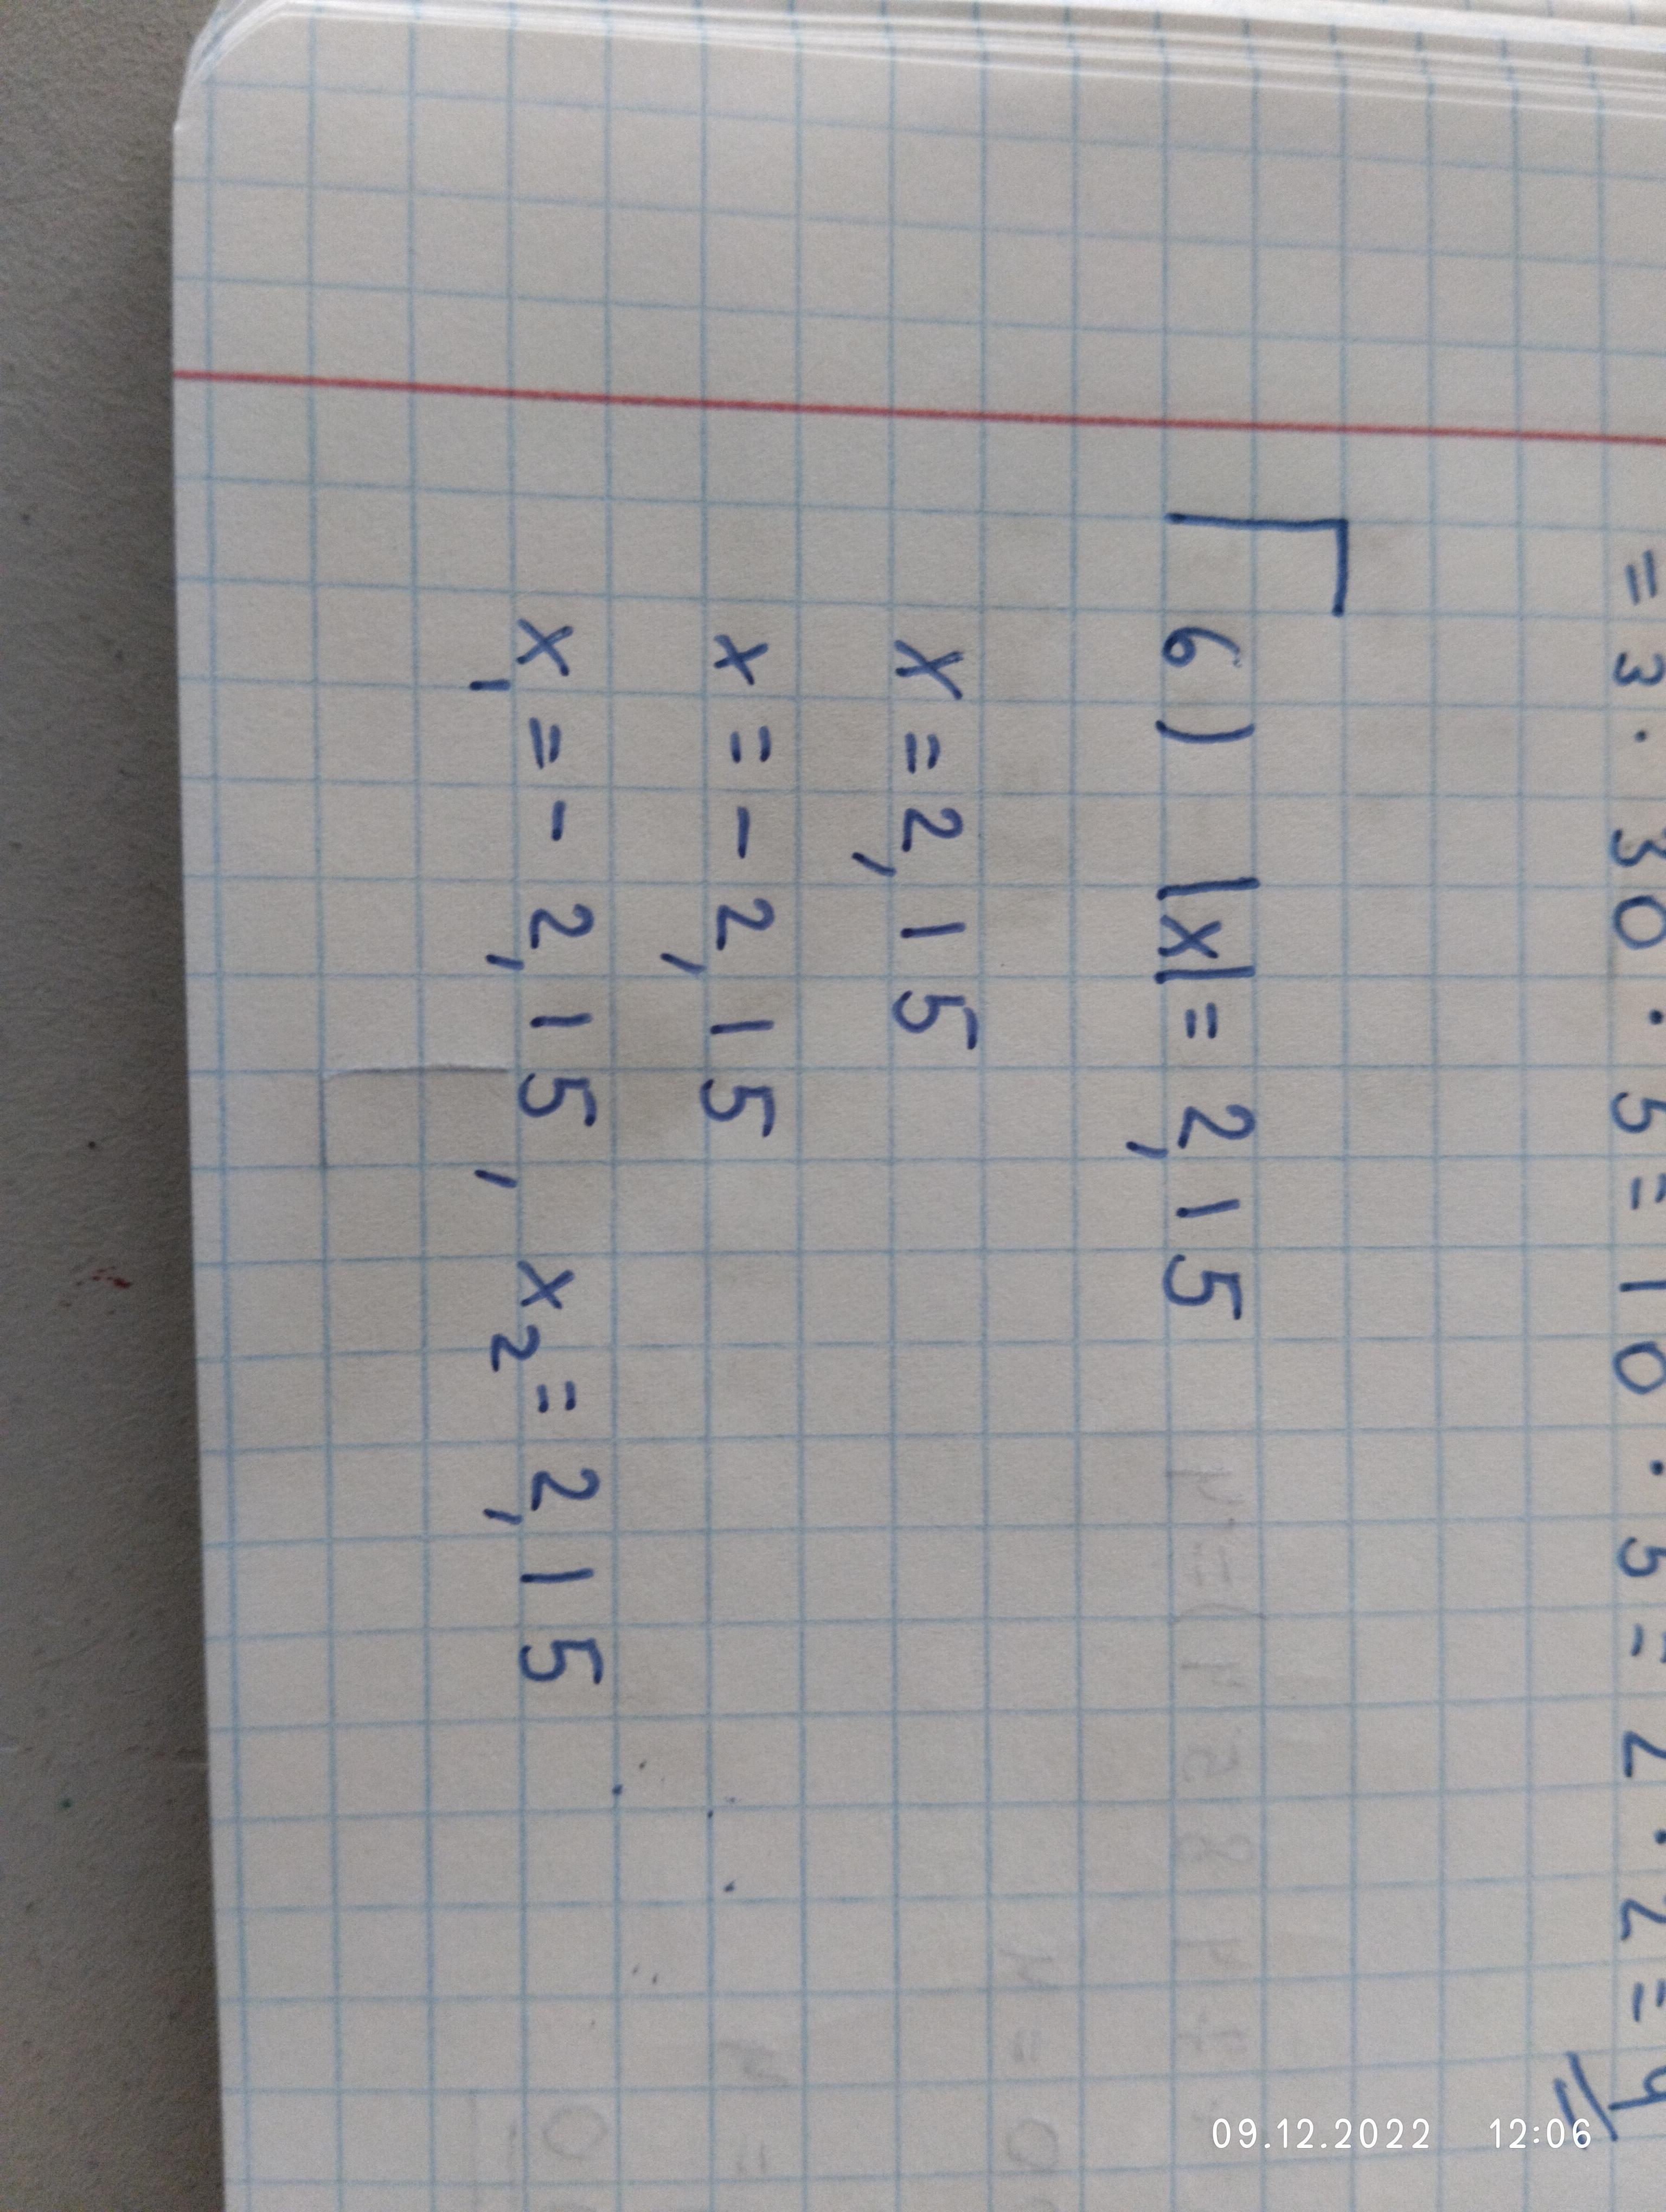 = 3 · 30 · 5 = 10 · 5 = 2 · 2 = 4
6) |x| = 2,15
x = 2,15
x = - 2,15
x₁ = - 2,15, x₂ = 2,15
09.12.2022 12:06